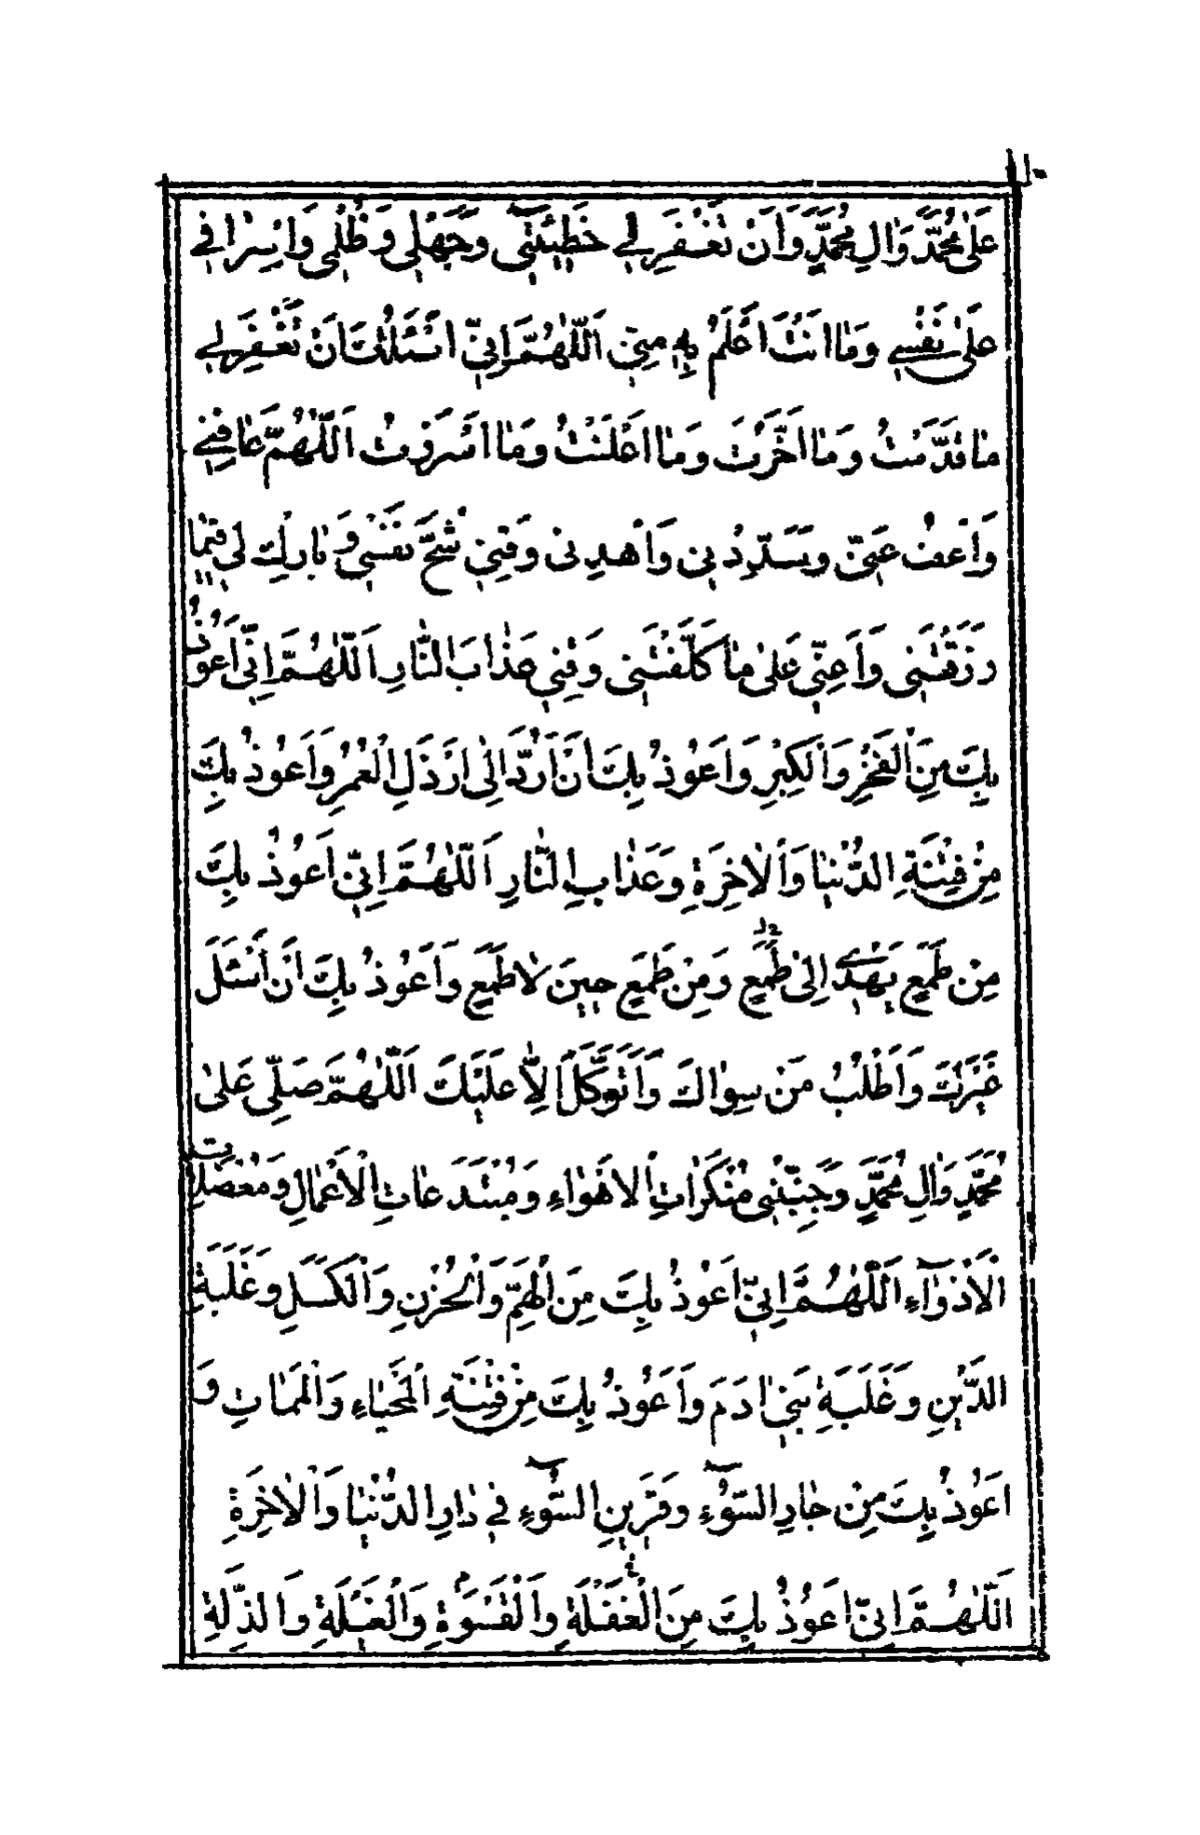 ١١٠
عَلىٰ مُحَمَّدٍ وَاٰلِ مُحَمَّدٍ وَاَنْ تَغْفِرَ لِے خَطٖيئَتٖى وَجَهْلٖى وَظُلْمٖى وَاِسْرٰافٖے
عَلىٰ نَفْسٖے وَمٰا اَنْتَ اَعْلَمُ بِهٖ مِنّٖى اَللّٰهُمَّ اِنّٖى اَسْئَلُكَ اَنْ تَغْفِرَ لِے
مٰا قَدَّمْتُ وَمٰا اَخَّرْتُ وَمٰا اَعْلَنْتُ وَمٰا اَسْرَرْتُ اَللّٰهُمَّ عٰافِنٖے
وَاعْفُ عَنّٖى وَسَدِّدْنٖى وَاهْدِنٖى وَقِنٖى شُحَّ نَفْسٖى وَ بٰارِكْ لٖى فٖيمٰا
رَزَقْتَنٖى وَاَعِنّٖى عَلىٰ مٰا كَلَّفْتَنٖى وَقِنٖى عَذٰابَ النّٰارِ اَللّٰهُمَّ اِنّٖى اَعُوذُ
بِكَ مِنَ الْفَخْرِ وَالْكِبْرِ وَاَعُوذُ بِكَ اَنْ اُرَدَّ اِلىٰ اَرْذَلِ الْعُمُرِ وَاَعُوذُ بِكَ
مِنْ فِتْنَةِ الدُّنْيٰا وَالْاٰخِرَةِ وَعَذٰابِ النّٰارِ اَللّٰهُمَّ اِنّٖى اَعُوذُ بِكَ
مِنْ طَمَعٍ يَهْدٖى اِلىٰ طَمَعٍ وَمِنْ طَمَعٍ حٖينَ لٰا طَمَعٍ وَاَعُوذُ بِكَ اَنْ اَسْئَلَ
غَيْرَكَ وَاَطْلُبُ مَنْ سِوٰاكَ وَاَتَوَكَّلَ اِلّٰا عَلَيْكَ اَللّٰهُمَّ صَلِّى عَلىٰ
مُحَمَّدٍ وَاٰلِ مُحَمَّدٍ وَجَنِّبْنٖى مُنْكَرٰاتِ الْاَهْوٰاءِ وَمُبْتَدَعٰاتِ الْاَعْمٰالِ وَمُعْضَلٰاتِ
الْاَدْوٰٓاءِ اَللّٰهُمَّ اِنّٖى اَعُوذُ بِكَ مِنَ الْهَمِّ وَالْحُزْنِ وَالْكَسَلِ وَغَلَبَةِ
الدَّيْنِ وَغَلَبَةِ بَنٖى اٰدَمَ وَاَعُوذُ بِكَ مِنْ فِتْنَةِ الْمَحْيٰاءِ وَالْمَمٰاتِ وَ
اَعُوذُ بِكَ مِنْ جٰارِ السَّوْءِ وَقَرٖينِ السُّوٓءِ فٖى دٰارِ الدُّنْيٰا وَالْاٰخِرَةِ
اَللّٰهُمَّ اِنّٖى اَعُوذُ بِكَ مِنَ الْغَفْلَةِ وَالْقَسْوَةِ وَالْعَيْلَةِ وَالذِّلَّةِ